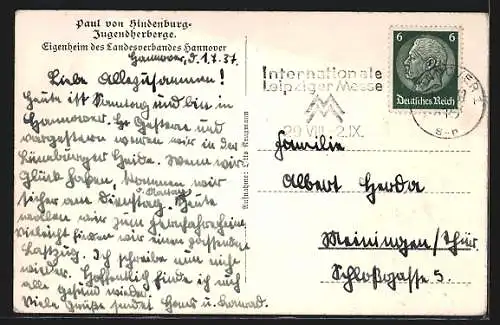 Paul von Hindenburg-
Jugendherberge.
Eigenheim des Landesverbandes Hannover
Hannover, d. 1.7.37.
Liebe Allezusammen!
Heute ist Samstag und bin in
Hannover. Gestern und
vorgestern waren wir in der
Lüneburger Heide. Wenn wir
Glück haben, kommen wir
sicher am Dienstag. Heute
wollen wir zum
Vielleicht finden wir einen passenden
Lastzug. Ich schreibe nun nicht
wieder. Hoffentlich finde ich euch
alle gesund wieder.
Viele Grüße sendet Hans u. Konrad.
Aufnahme: Otto
Internationale
Leipziger Messe
29. VIII. 2. IX.
6 6
Deutsches Reich
Familie
Albert Herda
Meiningen/Thür.
Schloßgasse 5.